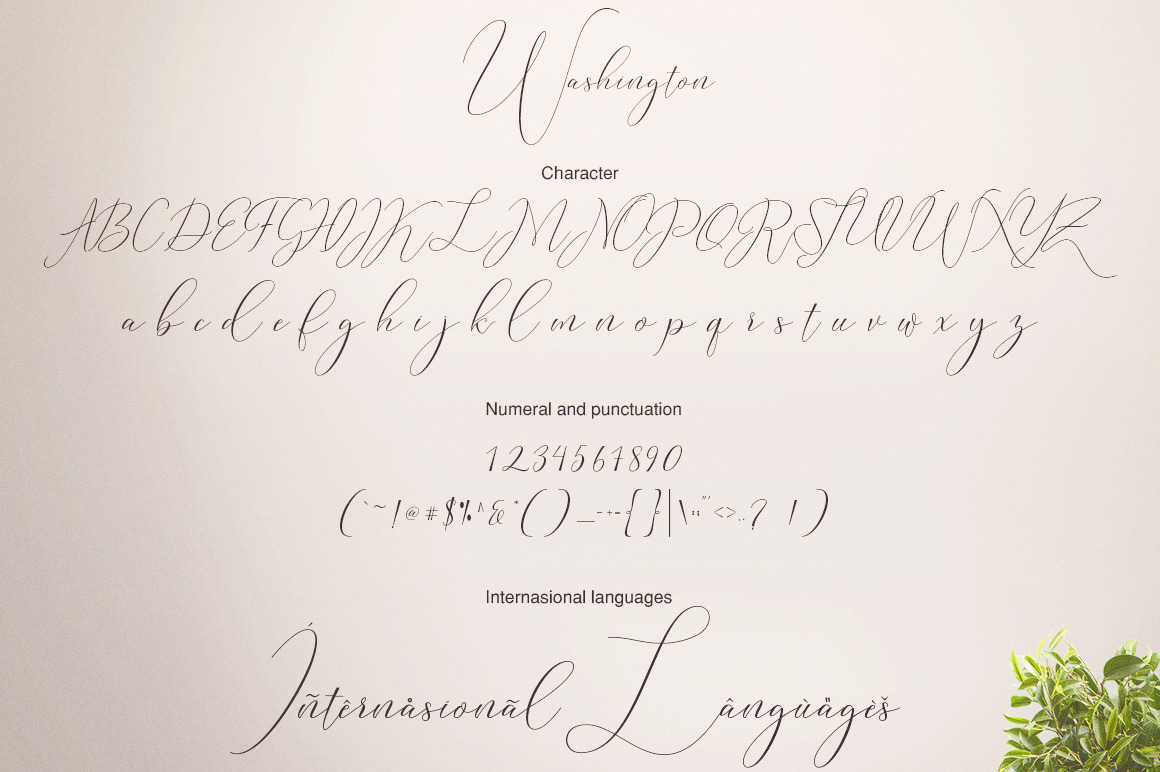 Washington
Character
ABCDEFGHIJKLMNOPQRSTUVWXYZ
a b c d e f g h i j k l m n o p q r s t u v w x y z
Numeral and punctuation
1234567890
(`~!@#$%^&*()_-+={}|\:;"'<>,.?/)
Internasional languages
Íñtêrnåsionãl Lângùägèš